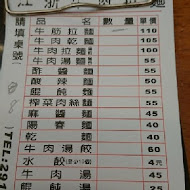 請填桌號
品名 數量 單價
牛筋拉麵 110
牛肉乾麵 105
牛肉拉麵 105
牛肉湯麵 55
酢醬麵 55
酸辣麵 55
餛飩麵 55
榨菜肉絲麵 55
麻醬麵 45
陽春麵 40
乾麵 40
牛肉湯餃 60
水餃 4元
牛肉湯 45
餛飩湯
TEL:291